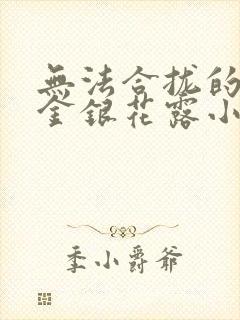 無法合拢的
金銀花露小
季小爵爷